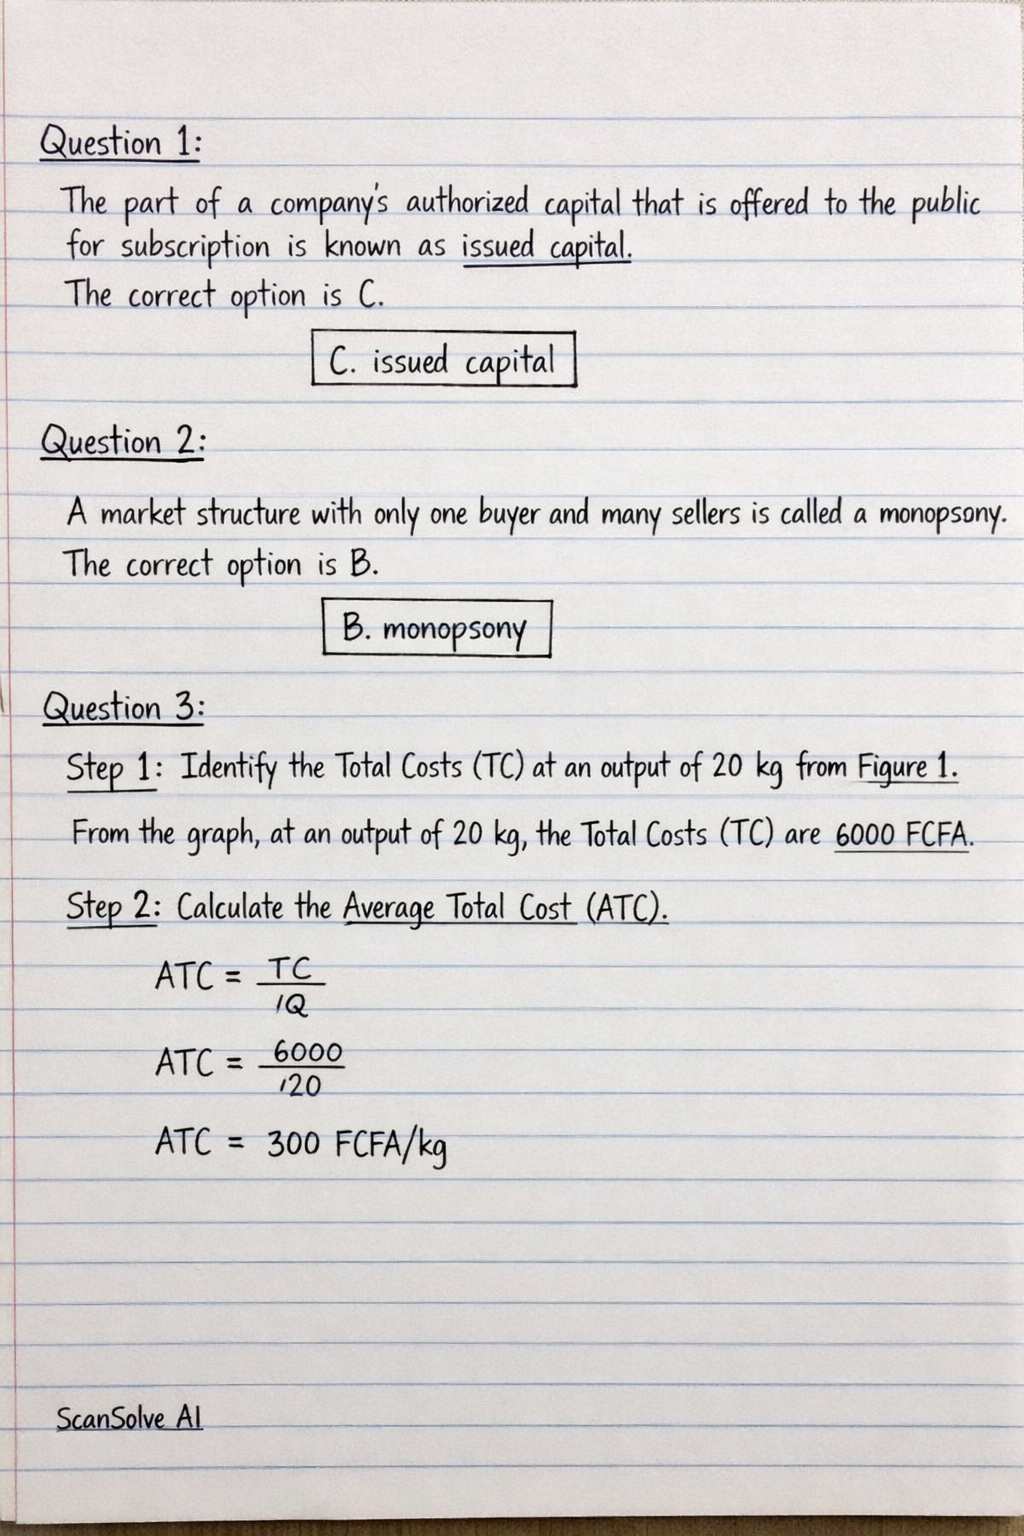 Question 1:
The part of a company's authorized capital that is offered to the public
for subscription is known as issued capital.
The correct option is C.
C. issued capital
Question 2:
A market structure with only one buyer and many sellers is called a monopsony.
The correct option is B.
B. monopsony
Question 3:
Step 1: Identify the Total Costs (TC) at an output of 20 kg from Figure 1.
From the graph, at an output of 20 kg, the Total Costs (TC) are 6000 FCFA.
Step 2: Calculate the Average Total Cost (ATC).
ATC = TC / Q
ATC = 6000 / 20
ATC = 300 FCFA/kg
ScanSolve AI